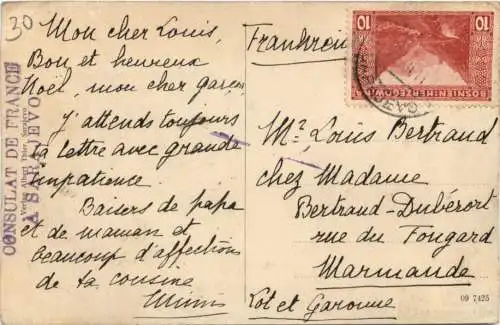 30
Mon cher Louis,
Bon et heureux
Noël, mon cher garçon
J'attends toujours
ta lettre avec grande
impatience.
Baisers de papa
et de maman et
beaucoup d'affections
de ta cousine
Mimi
CONSULAT DE FRANCE
A SARAJEVO
Verlag Albert Thier, Sarajevo
Frankreich
10 10
BOSNIEN-HERZEGOWINA
Mr Louis Bertrand
chez Madame
Bertrand-Dubérort
rue du Fougard
Marmande
Lot et Garonne
09 7425